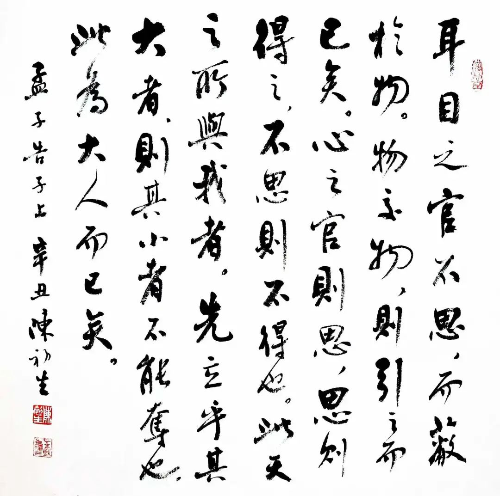 耳目之官不思，而蔽
於物。物交物，則引之而
已矣。心之官則思，思則
得之，不思則不得也。此天
之所與我者。先立乎其
大者，則其小者不能奪也，
此為大人而已矣。
孟子告子上 辛丑 陳初生